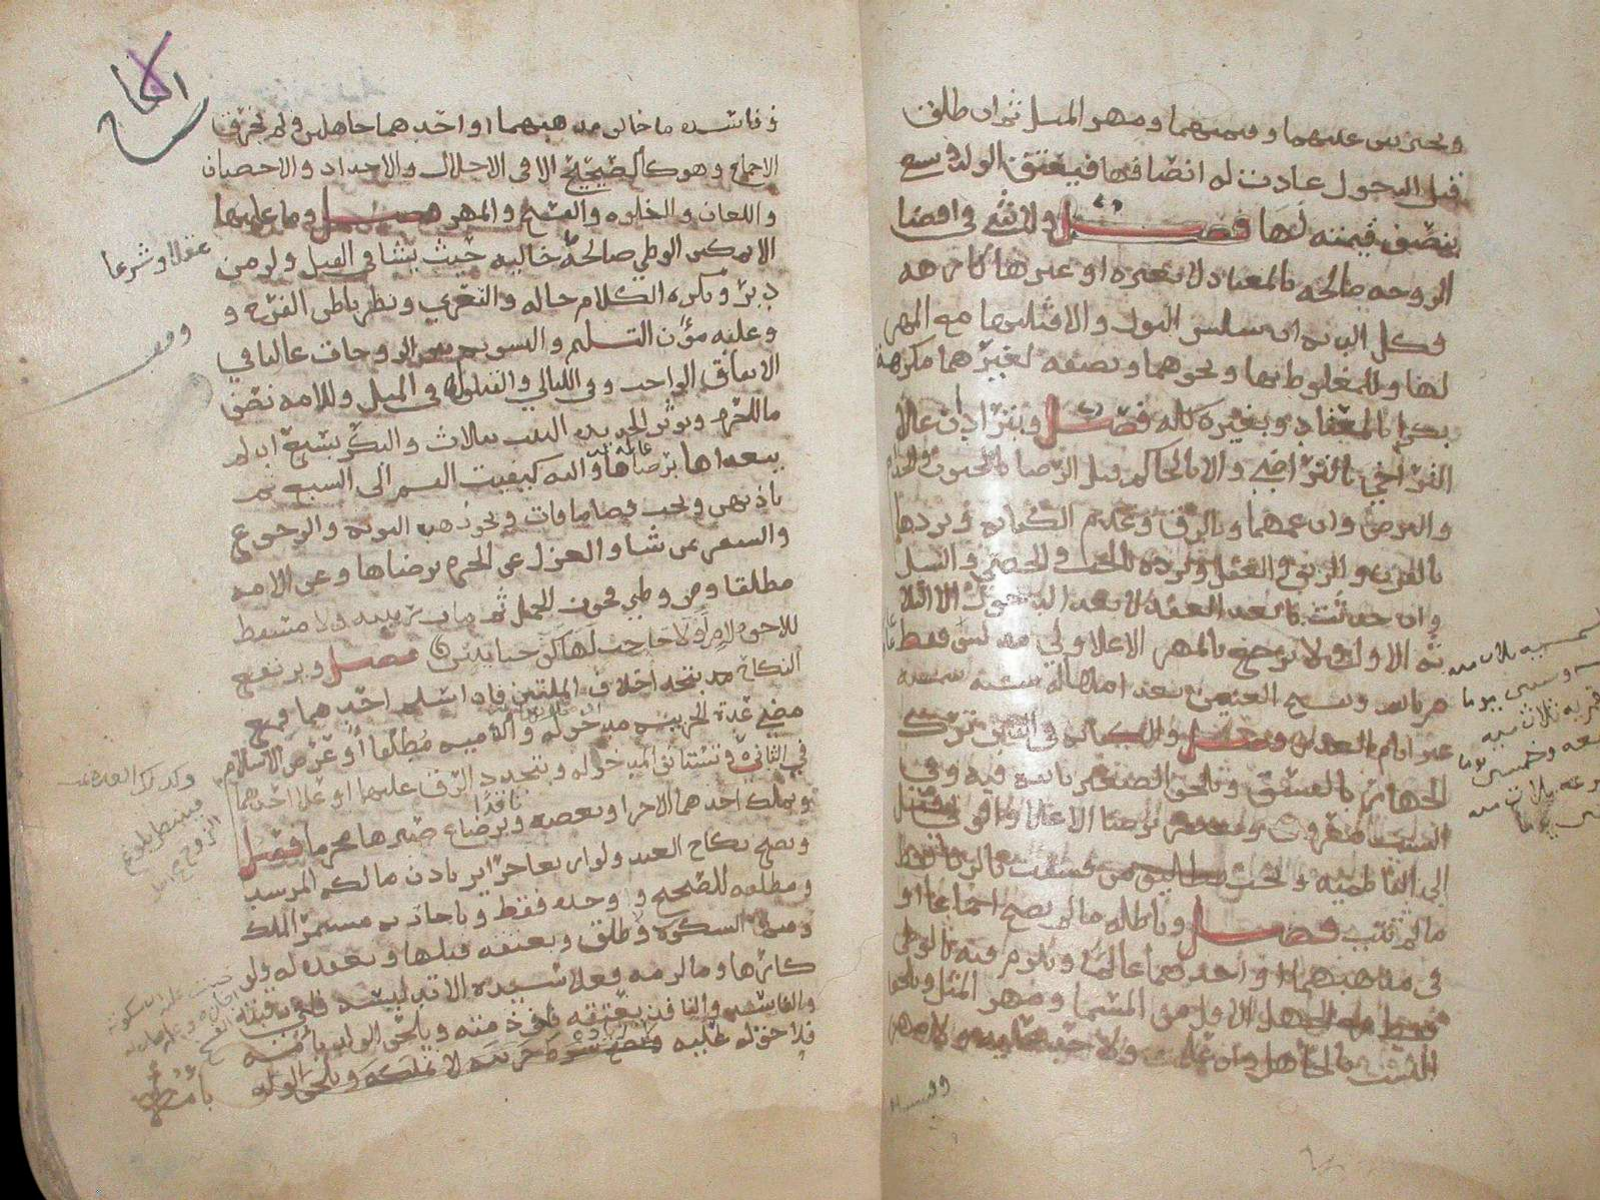 ويخير بين عينهما وقيمتهما ومهر المثل ثم ان طلق
قبل الدخول عادت له انصافها فيعتق الولد ويسع
بنصف قيمته لها فصل ولا شي في افضا
الزوجه صالحه بالمعتاد لا بغيره او غيرها كارهه
فكل الديه ان سلس البول والا فثلثها مع المهر
لها وللمغلوط بها ونحوهما ونصفه لغيرهما مكرهة
بكرا بالمعتاد وبغيره كله فصل ويترادان على
التراخي بالتراضي والا بالحاكم قبل الرضا بالجنون والجذام
والبرص وان عمهما وبالرق وعدم الكفاه ويردها
بالقرن والرتق والعفل وترده بالجب والخصي والسل
وان حدثت بعد العقد لا بعد الدخول الا الثلا
ثه الاول ولا يرجع بالمهر الا على ولي مدلس فقط
ويفسخ العنين بعد امهاله سنه شمسيه
غير ايام العذر فصل والكفاه في الدين ترك
الجهار بالفسق ويلحق الصغير بابيه فيه وفي
النسب معروف ويغتفر برضا الاعلا والولي قيل
الى الفاطميه ويجب تطليق من فسقت بالزنا فقط
ما لم تتب فصل وباطله ما لم يصح اجماعا او
في مذهبهما او احدهما عالما ويلزم فيه بالوطي
فقط مع الجهل الاقل من المسما ومهر المثل ويلحق
النسب بالجاهل وان علمت ولا حد عليه ولا مهر
وفاسده
وفاسده ما خالف مذهبهما او احدهما جاهلين ولم يخرق
الاجماع وهو كالصحيح الا في الاحلال والاحداد والاحصان
واللعان والخلوه والفسخ والمهر فصل وما عليها
الا تمكين الوطي صالحة خاليه حيث يشا في القبل ولو من
دبر ويكره الكلام حاله والتعري ونظر باطن الفرج و
وعليه مؤن التسليم والتسويه بين الزوجات غالبا في
الانفاق الواجب وفي الليالي والقيلوله في الميل وللامه نصف
ما للحره ويوثر الجديده الثيب بثلاث والبكر بسبع ان لم
يتعداها برضاها واليه كيفيت القسم الى السبع ثم
باذنهن ويجب قضا ما فات ويجوز هبه النوبه والرجوع
والسفر بمن شا والعزل عن الحره برضاها وعن الامه
مطلقا ومن وطي فجوز الحمل ثم مات ربيبه ولا مسقط
للاخوه لام او لا حاجب لها كف حتا يتبين فصل ويرتفع
النكاح بتجدد اختلاف الملتين فان اسلم احدهما فمع
مضي عدة الحربيه مدخوله والذميه مطلقا او عرض الاسلام
في الثاني فتستانف المدخوله وبتجدد الرق عليهما او على احدهما
وبملك احدهما الاخر او بعضه نافذا وبرضاع صيرها محرما فصل
ويصح نكاح العبد ولو اربعا حراير باذن مالكه المرشد
ومطلقه للصحيح وواحده فقط وباجازته مستمر الملك
ومنها السكوت وطلق وبعتقه قبلها وبعقده له ولو
كارها وما لزمه فعلا سيده الا تدليسه ففي رقبته
والفاسد والنافذ بعتقه ففي ذمته ويلحق الولد بامه
فلا حق له عليه ويصح شرط حريته لا تملكه ويلحق الولد
عقلا وشرعا